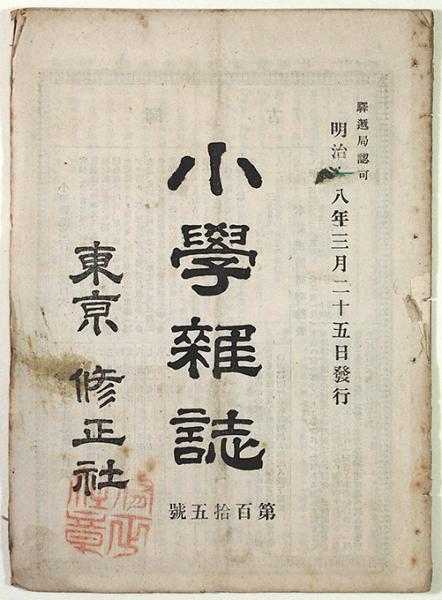 驛遞局認可
明治 八年三月二十五日發行
小學雜誌
第百拾五號
東京 修正社